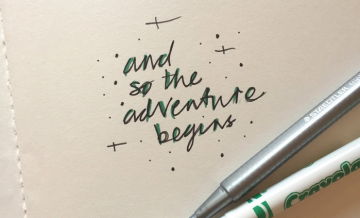 and
so the
adventure
begins
Crayola